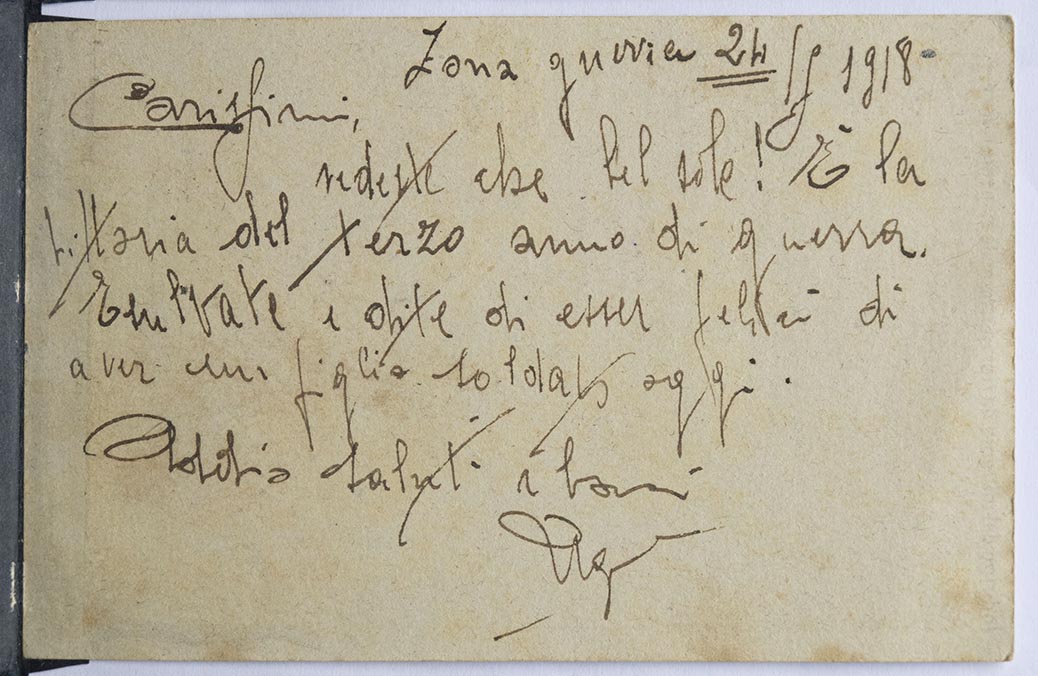 Zona guerra 24/5 1918
Carissimi,
vedeste che bel sole! È la
vittoria del terzo anno di guerra.
Esultate e dite di esser felici di
aver un figlio soldato oggi.
Addio saluti e baci
Ugo